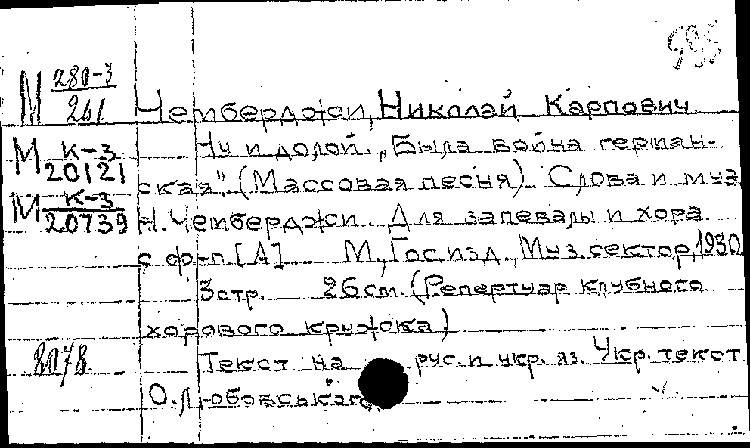 995
М 280-3
261
Чемберджи, Николай Карпович
М К-3
20121
Ну и долой. „Была война герман-
ская". (Массовая песня). Слова и муз.
М К-3
20739
Н. Чемберджи. Для запевалы и хора
с ф-п. [А] М., Госизд., Муз. сектор, 1930
3 стр. 26 см. (Репертуар клубного
хорового кружка)
8078
Текст на рус. и укр. яз. Укр. текст
О. Любовського